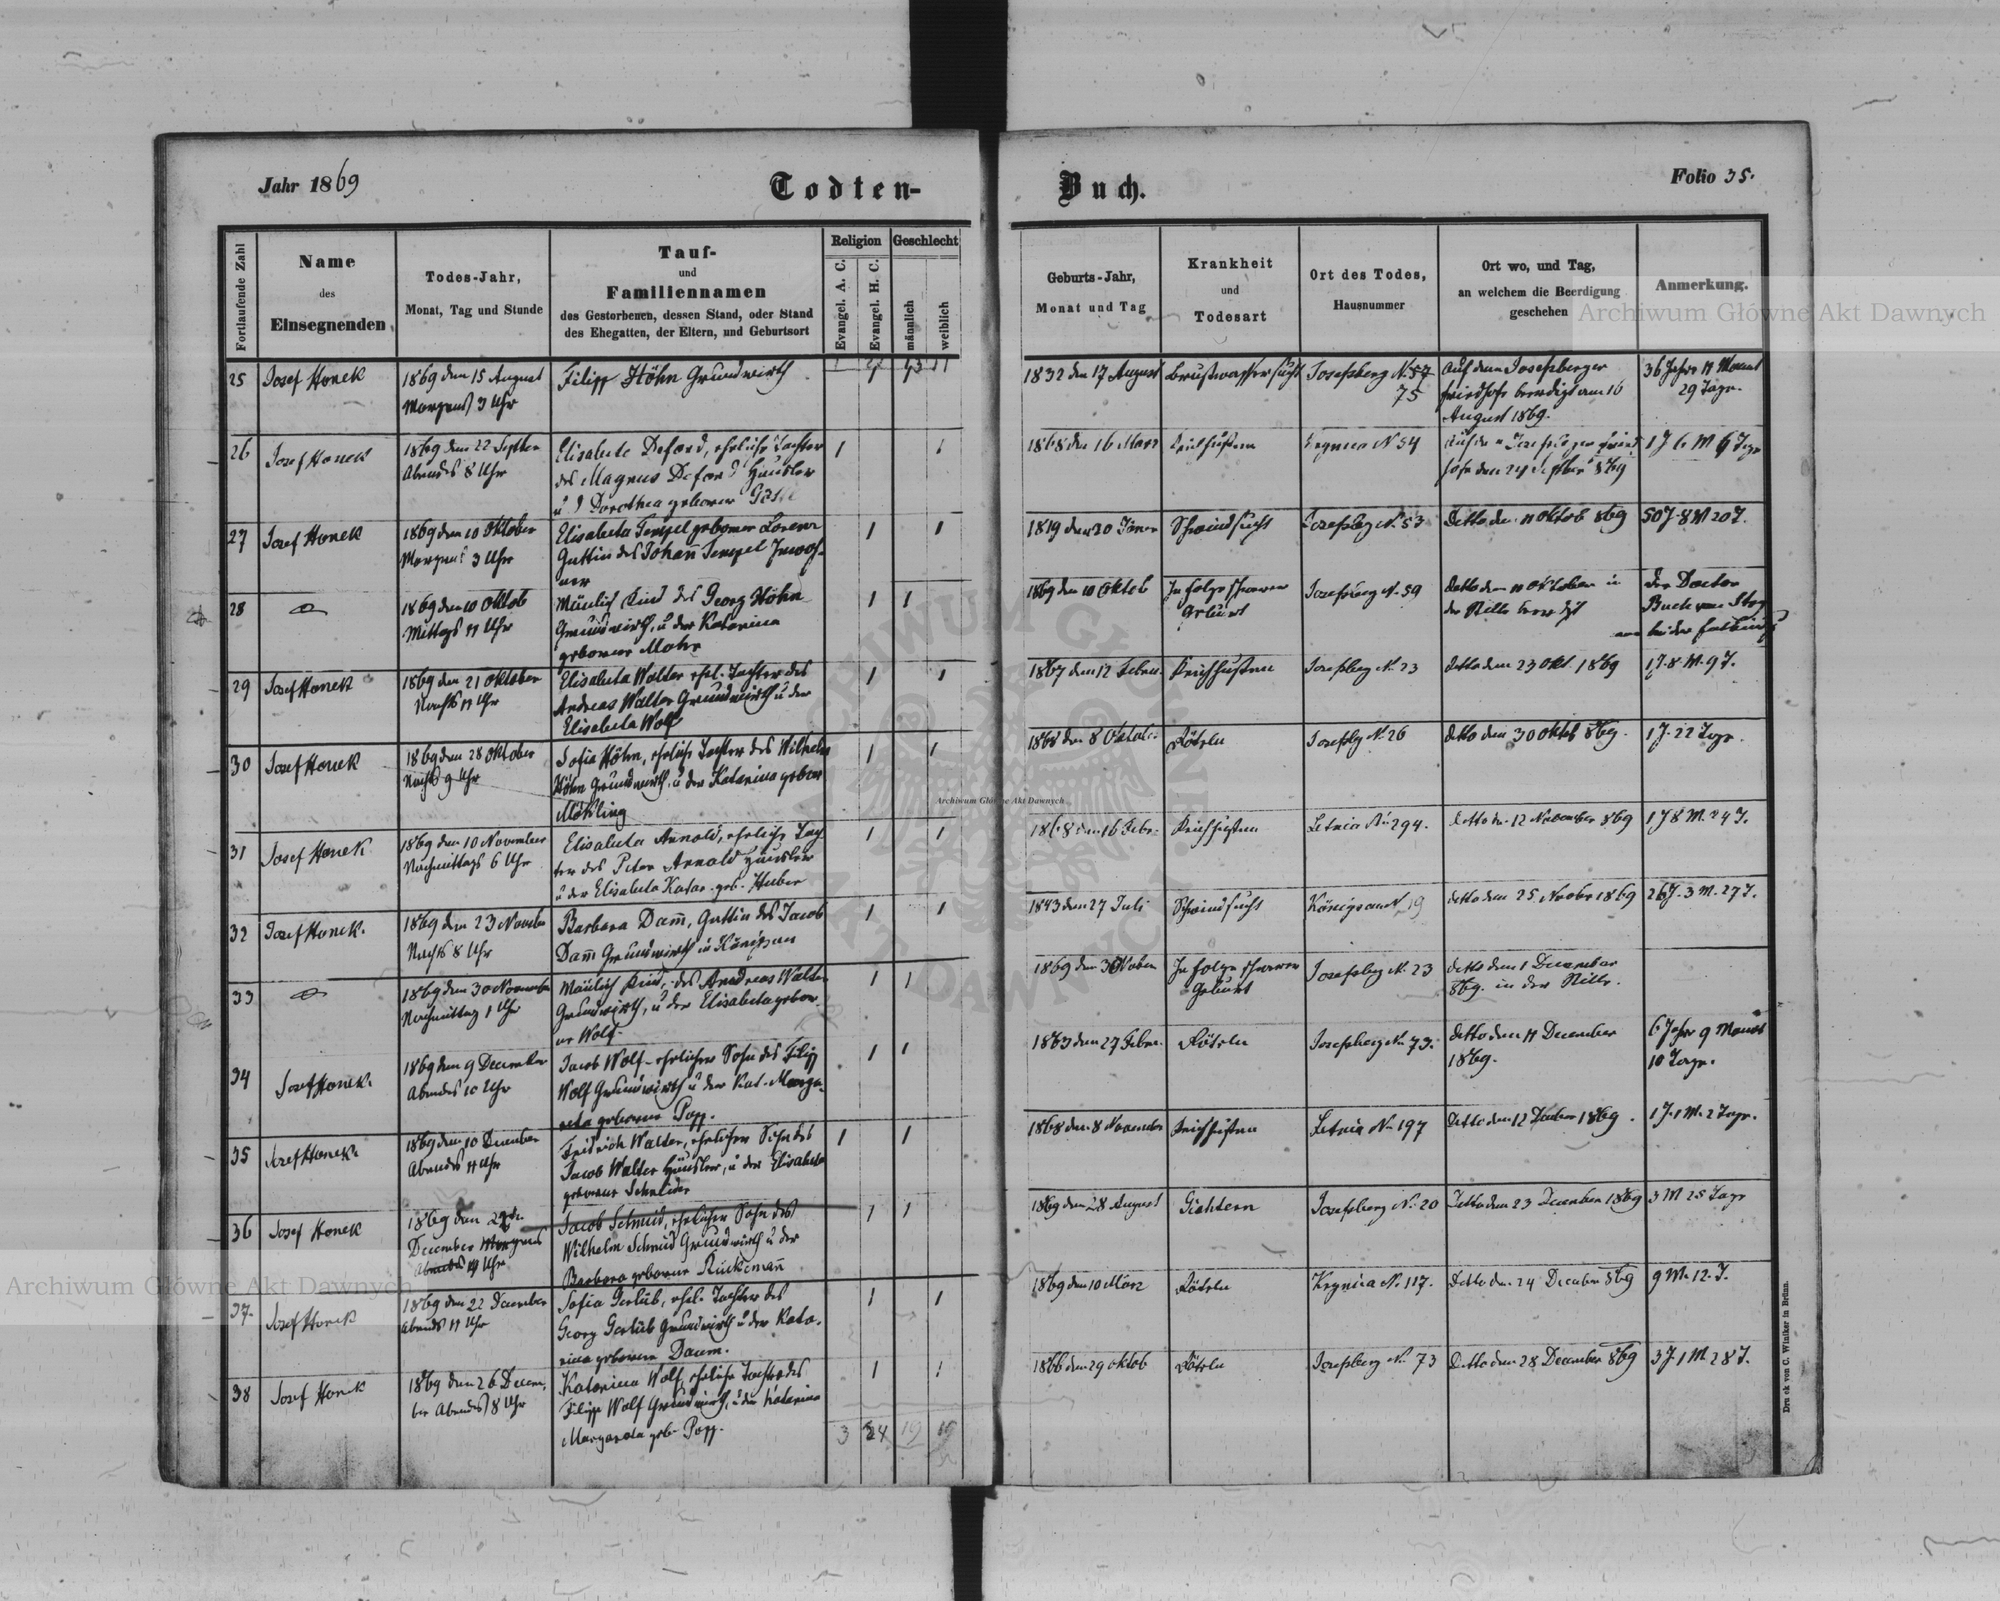 Jahr 1869
Todten-
Buch.
Folio 35.
Fortlaufende Zahl
Name
des
Einsegnenden
Todes-Jahr,
Monat, Tag und Stunde
Tauf-
und
Familiennamen
des Gestorbenen, dessen Stand, oder Stand
des Ehegatten, der Eltern, und Geburtsort
Religion
Evangel. A. C.
Evangel. H. C.
Geschlecht
männlich
weiblich
Geburts-Jahr,
Monat und Tag
Krankheit
und
Todesart
Ort des Todes,
Hausnummer
Ort wo, und Tag,
an welchem die Beerdigung
geschehen
Anmerkung.
25
Josef Honek
1869 den 15 August
Morgens 3 Uhr
Filipp Höhn Grundwirth
1832 den 17 August
Brustwassersucht
Josefsberg N. 57
75
Auf dem Josefsberger
Friedhofe beerdigt am 16
August 1869.
36 Jahre 11 Monat
29 Tage.
26
Josef Honek
1869 den 22 Septber
Abends 8 Uhr
Elisabeta Deford, eheliche Tochter
des Magnus Deford Häusler
u Dorothea geborne
1
1
1868 den 16 März
Keichhusten
Krynica N 54
1 J 6 M 6 Tage
27
Josef Honek
1869 den 10 Oktober
Morgens 3 Uhr
Elisabeta Tempel geborner Lorenz
Gattin des Johan Tempel Inwoh-
ner
1
1
1819 den 20 Jäner
Schwindsucht
Josefsbeg N. 53
Detto den 11 Oktob 869
50 J. 8 M 20 J.
28
1869 den 10 Oktob
Mittags 11 Uhr
Mänlich Kind des Georg Höhn
Grundwirth, u der Katarina
geborne Mohr
1
1
1869 den 10 Oktob
In folge schwerer
Geburt
Josefsberg N. 59
Detto den 11 Oktober in
der Stille beerdigt
der Doctor
Buck von Stryj
war bei der Entbindg
29
Josef Honek
1869 den 21 Oktober
Nachts 11 Uhr
Elisabeta Walter ehel. Tochter des
Andreas Walter Grundwirth u der
Elisabeta Wolf
1
1
1867 den 12 Febru.
Keichhusten
Josefsberg N. 23
detto den 23 Okt 1869
1 J. 8 M. 9 T.
30
Josef Honek
1869 den 28 Oktober
Nachts 9 Uhr
Sofia Höhn, eheliche Tochter des Wilhelm
Höhn Grundwirth, u der Katarina gebore
Mökling
1
1
1868 den 8 Oktob.
Rötteln
Josefsbg N. 26
detto den 30 Oktb 869.
1 J. 22 Tage.
31
Josef Honek
1869 den 10 November
Nachmittags 6 Uhr
Elisabeta Arnold, eheliche Toch
ter des Peter Arnold Häusler
u der Elisabeta Katar. geb. Huber
1
1
1868 den 16 Febr.
Keichhusten
Letnia N. 294.
detto den 12 November 869
1 J 8 M. 24 T.
32
Josef Honek.
1869 den 23 Novembr
Nachts 8 Uhr
Barbara Dam̄, Gattin des Jacob
Dam̄ Grundwirth in Königsau
1
1
1843 den 27 Juli
Schwindsucht
Königsau N 19
detto den 25 Novbr 1869
26 J. 3 M. 27 T.
33
1869 den 30 November
Nachmittag 1 Uhr
Mänlich Kind, des Andreas Walter
Grundwirth, u der Elisabeta gebor-
ne Wolf
1
1
1869 den 30 Novbem
In folge schwerer
Geburt
Josefsbeg N. 23
detto den 1 December
869. in der Stille.
34
Josef Honek.
1869 den 9 December
Abends 10 Uhr
Jacob Wolf, ehelicher Sohn des Filip
Wolf Grundwirth u der Kat. Marga-
reta geborne Popp.
1
1
1863 den 27 Febru.
Rötteln
Josefsberg N. 73.
detto den 11 December
1869.
6 Jahre 9 Monat
10 Tage.
35
Josef Honek.
1869 den 10 December
Abends 11 Uhr
Fridrich Walter, ehelicher Sohn des
Jacob Walter Häusler, u der Elisabeta
geborne Schneider
1
1
1868 den 8 November
Keichhusten
Letnia N. 197
Detto den 12 Decber 1869.
1 J. 1 M. 2 Tage.
36
Josef Honek
1869 den
December Morgens
Abends 11 Uhr
Jacob Schmid, ehelicher Sohn des
Wilhelm Schmid Grundwirth u der
Barbara geborne Rückeman̄
1
1
1869 den 28 August
Gichtern
Josefsberg N. 20
Detto den 23 December 1869
3 M 25 Tage
37.
Josef Honek
1869 den 22 December
Abends 11 Uhr
Sofia Gerlüb, ehel. Tochter des
Georg Gerlüb Grundwirth u der Kata-
rina geborene Daum.
1
1
1869 den 10 März
Rötteln
Krynica N. 117.
Detto den 24 December 869
9 M. 12 T.
38
Josef Honek
1869 den 26 Decem-
ber Abends 8 Uhr
Katarina Wolf, eheliche Tochter des
Filipp Wolf Grundwirth, u der Katarina
Margareta geb. Popp.
1
1
1866 den 29 Oktob
Rötteln
Josefsberg N. 73
Detto den 28 December 869
3 J 1 M 28 T.
3
24
19
Druck von C. Winiker in Brünn.
Archiwum Główne Akt Dawnych
Archiwum Główne Akt Dawnych
Archiwum Główne Akt Dawnych
ARCHIWUM GŁÓWNE AKT DAWNYCH